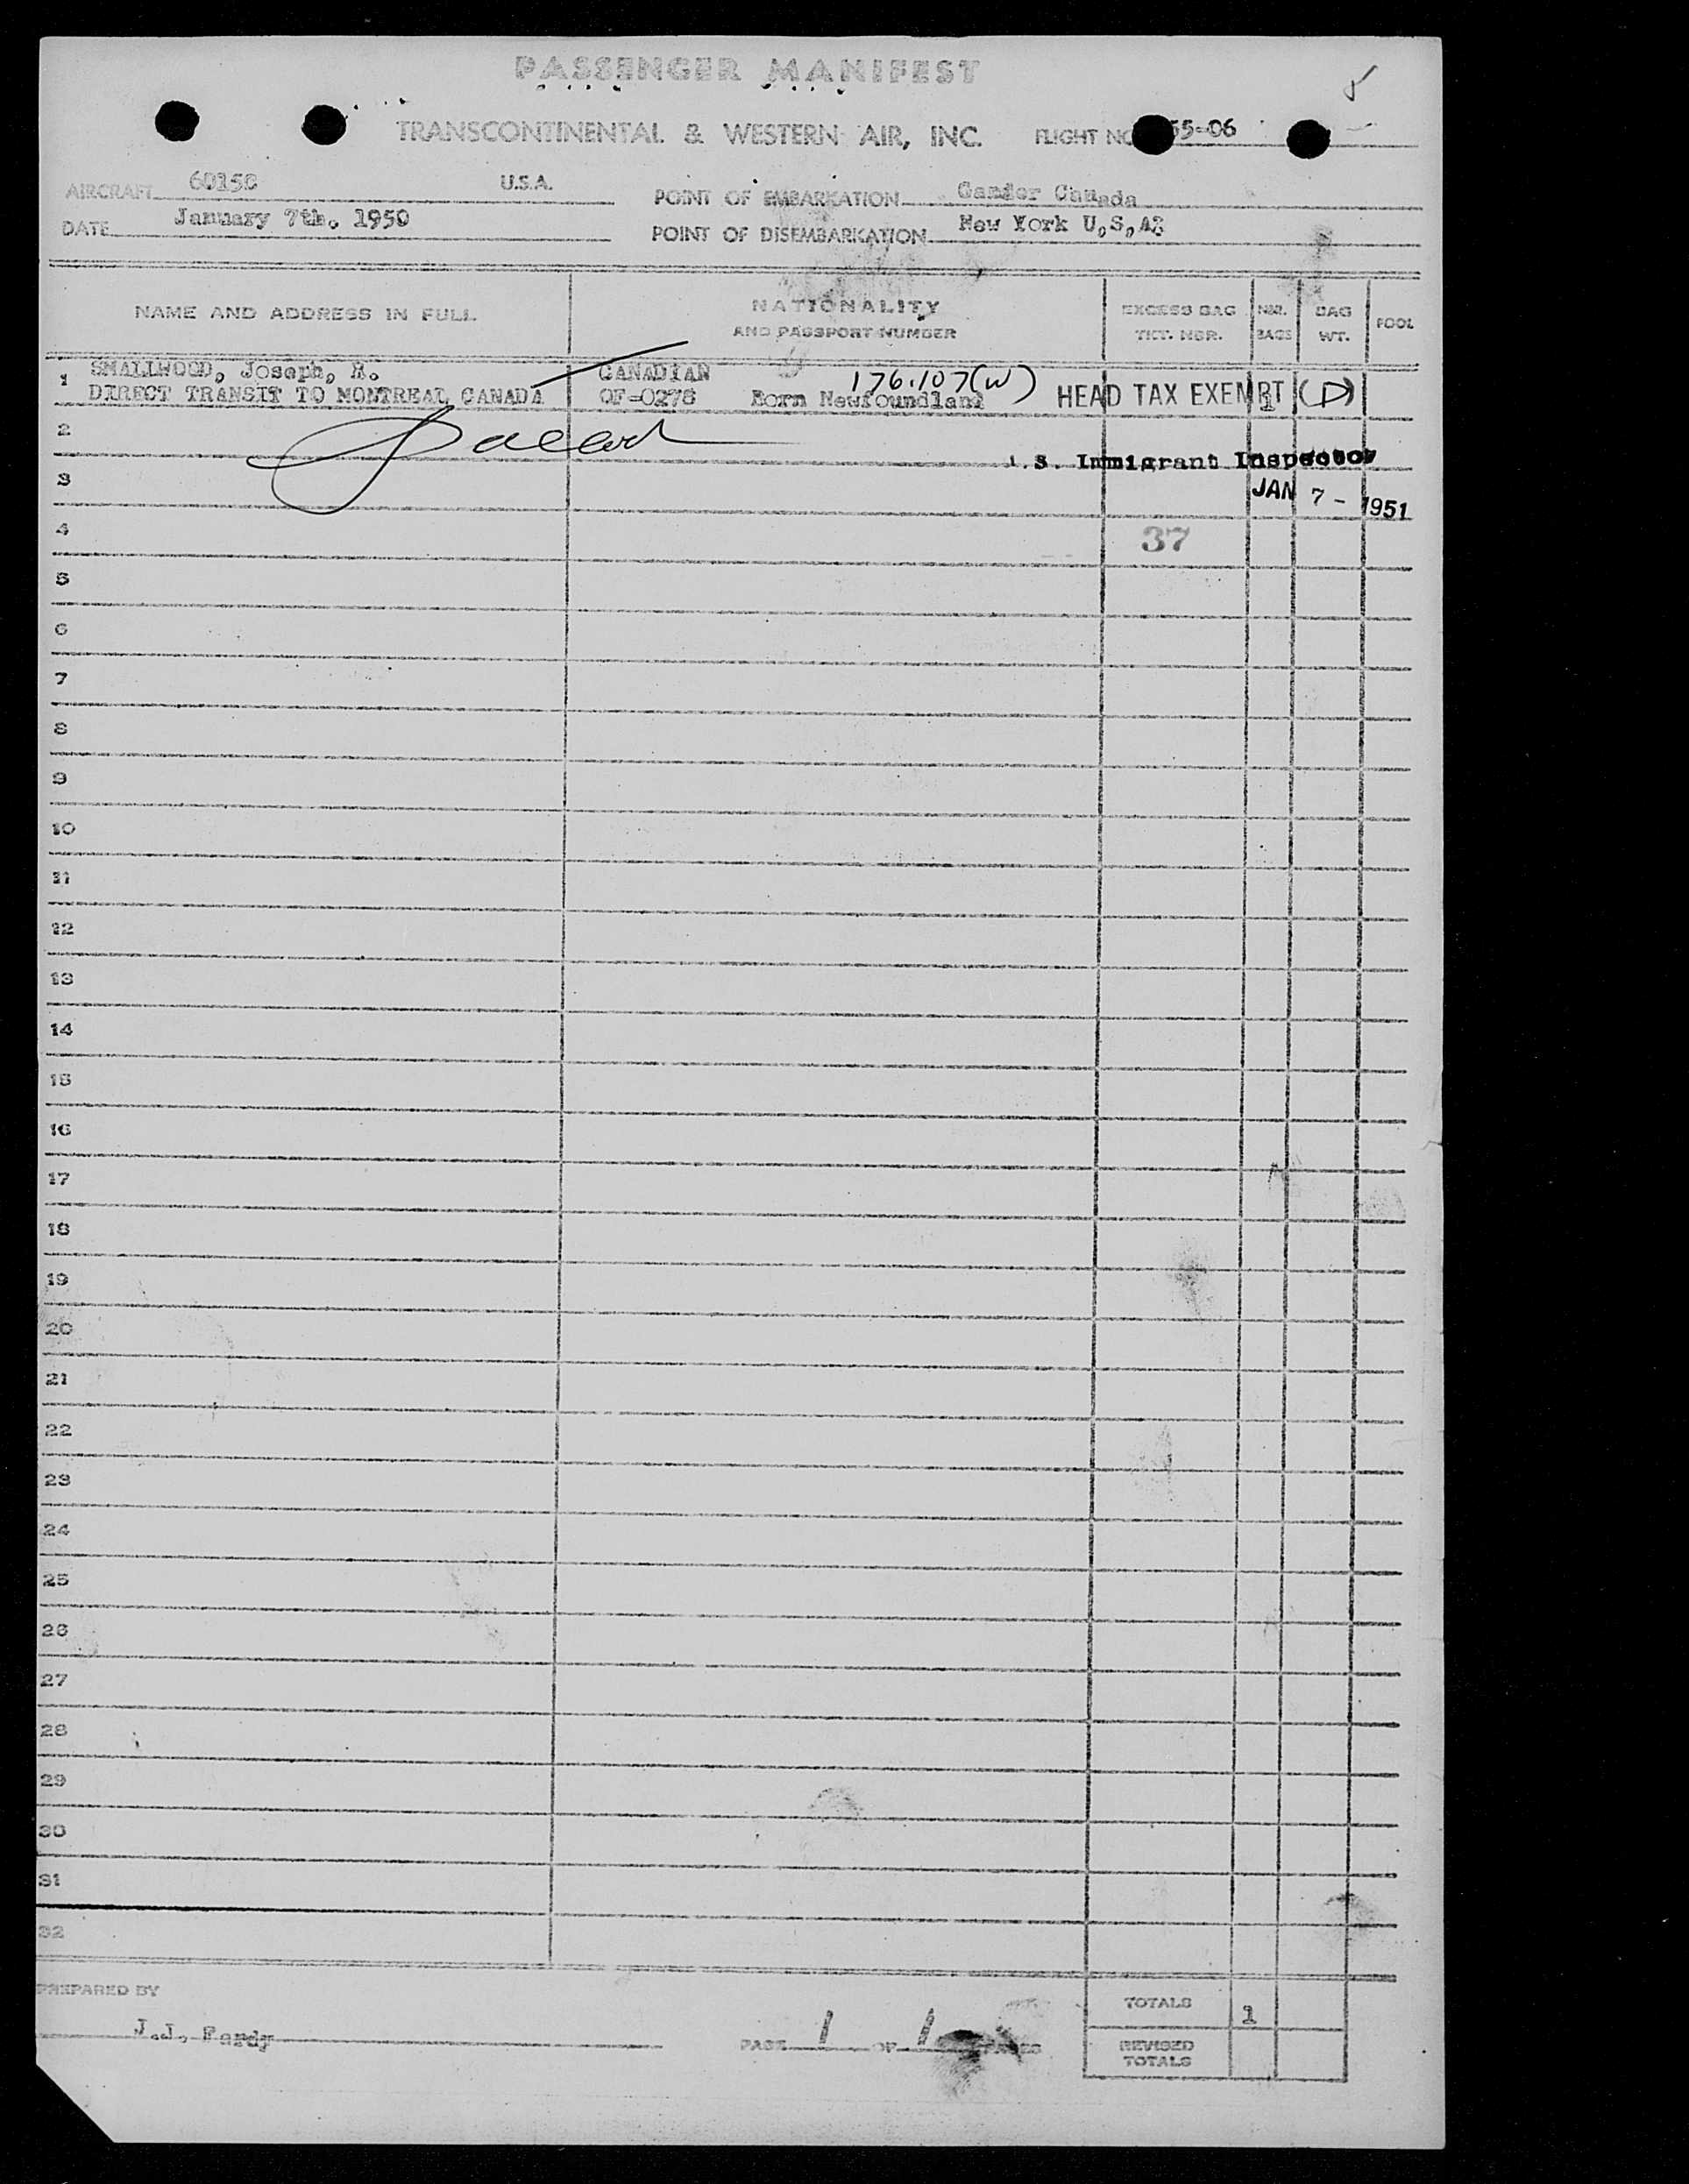 PASSENGER MANIFEST
TRANSCONTINENTAL & WESTERN AIR, INC. FLIGHT NO 55-06
AIRCRAFT 6015C U.S.A. POINT OF EMBARKATION Gander Canada
DATE January 7th. 1950 POINT OF DISEMBARKATION New York U,S,A
NAME AND ADDRESS IN FULL NATIONALITY AND PASSPORT NUMBER EXCESS BAG TKT. NBR. NBR. BAGS BAG WT. POOL
1 SMALLWOOD, Joseph, R. CANADIAN 176.107(W)
DIRECT TRANSIT TO MONTREAL CANADA OF-0278 Born Newfoundland HEAD TAX EXEMPT 1 (D)
2
S. Immigrant Inspector
3 JAN 7 - 1951
4 37
5
6
7
8
9
10
11
12
13
14
15
16
17
18
19
20
21
22
23
24
25
26
27
28
29
30
31
32
PREPARED BY
TOTALS 1
J.J. PAGE 1 OF 1 PAGES
REVISED TOTALS